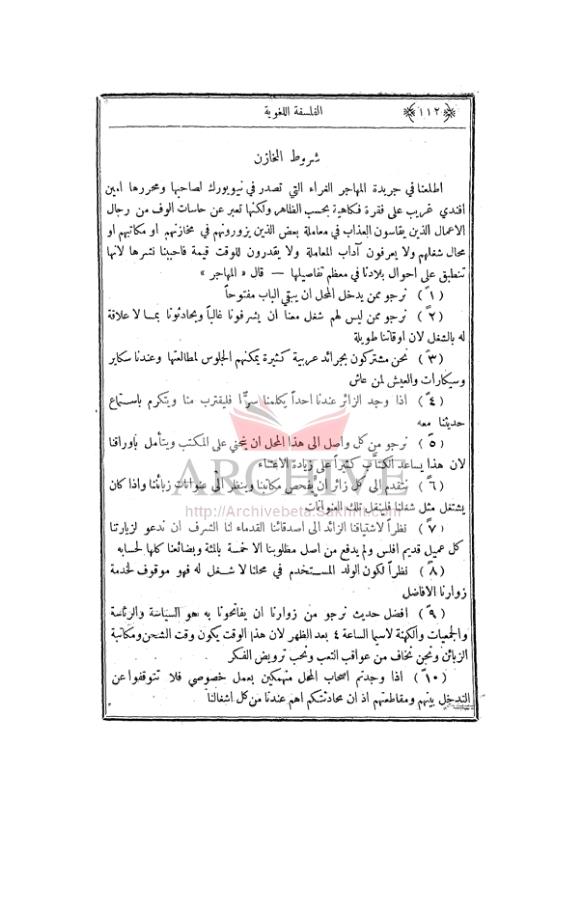 ﴿١١٢﴾ الفلسفة اللغوية
شروط المخازن
اطلعنا في جريدة المهاجر الغراء التي تصدر في نيويورك لصاحبها ومحررها امين
افندي غريب على فقرة فكاهية بحسب الظاهر ولكنها تعبر عن حاسات الوف من رجال
الاعمال الذين يقاسون العذاب في معاملة بعض الذين يزورونهم في مخازنهم او مكاتبهم او
محال شغلهم ولا يعرفون آداب المعاملة ولا يقدرون للوقت قيمة فاحببنا نشرها لانها
تنطبق على احوال بلادنا في معظم تفاصيلها — قال « المهاجر »
(١ً) نرجو ممن يدخل المحل ان يبقي الباب مفتوحاً
(٢ً) نرجو ممن ليس لهم شغل معنا ان يشرفونا غالباً ويحادثونا بما لا علاقة
له بالشغل لان اوقاتنا طويلة
(٣ً) نحن مشتركون بجرائد عربية كثيرة يمكنهم الجلوس لمطالعتها وعندنا سكاير
وسيكارات والعيش لمن عاش
(٤ً) اذا وجد الزائر عندنا احداً يكلمنا سرًّا فليقترب منا ويتكرم باستماع
حديثنا معه
(٥ً) نرجو من كل واصل الى هذا المحل ان ينحني على المكتب ويتأمل باوراقنا
لان هذا يساعد الكتَّاب كثيراً على زيادة الاعتناء
(٦ً) نتقدم الى كل زائر ان يفحص مكاتبنا وينظر الى عنوانات زبائننا واذا كان
يشتغل مثل شغلنا فلينقل تلك العنوانات
(٧ً) نظراً لاشتياقنا الزائد الى اصدقائنا القدماء لنا الشرف ان ندعو لزيارتنا
كل عميل قديم افلس ولم يدفع من اصل مطلوبنا الا خمسة بالمئة وبضائعنا كلها لحسابه
(٨ً) نظراً لكون الولد المستخدم في محلنا لا شغل له فهو موقوف لخدمة
زوارنا الافاضل
(٩ً) افضل حديث نرجو من زوارنا ان يفاتحونا به هو السياسة والرئاسة
والجمعيات والكهنة لاسيما الساعة ٤ بعد الظهر لان هذا الوقت يكون وقت الشحن ومكاتبة
الزبائن ونحن نخاف من عواقب التعب ونحب ترويض الفكر
(١٠ً) اذا وجدتم اصحاب المحل منهمكين بعمل خصوصي فلا تتوقفوا عن
التدخل بينهم ومقاطعتهم اذ ان محادثتكم اهم عندنا من كل اشغالنا
ARCHIVE
http://Archivebeta.Sakhrit.com